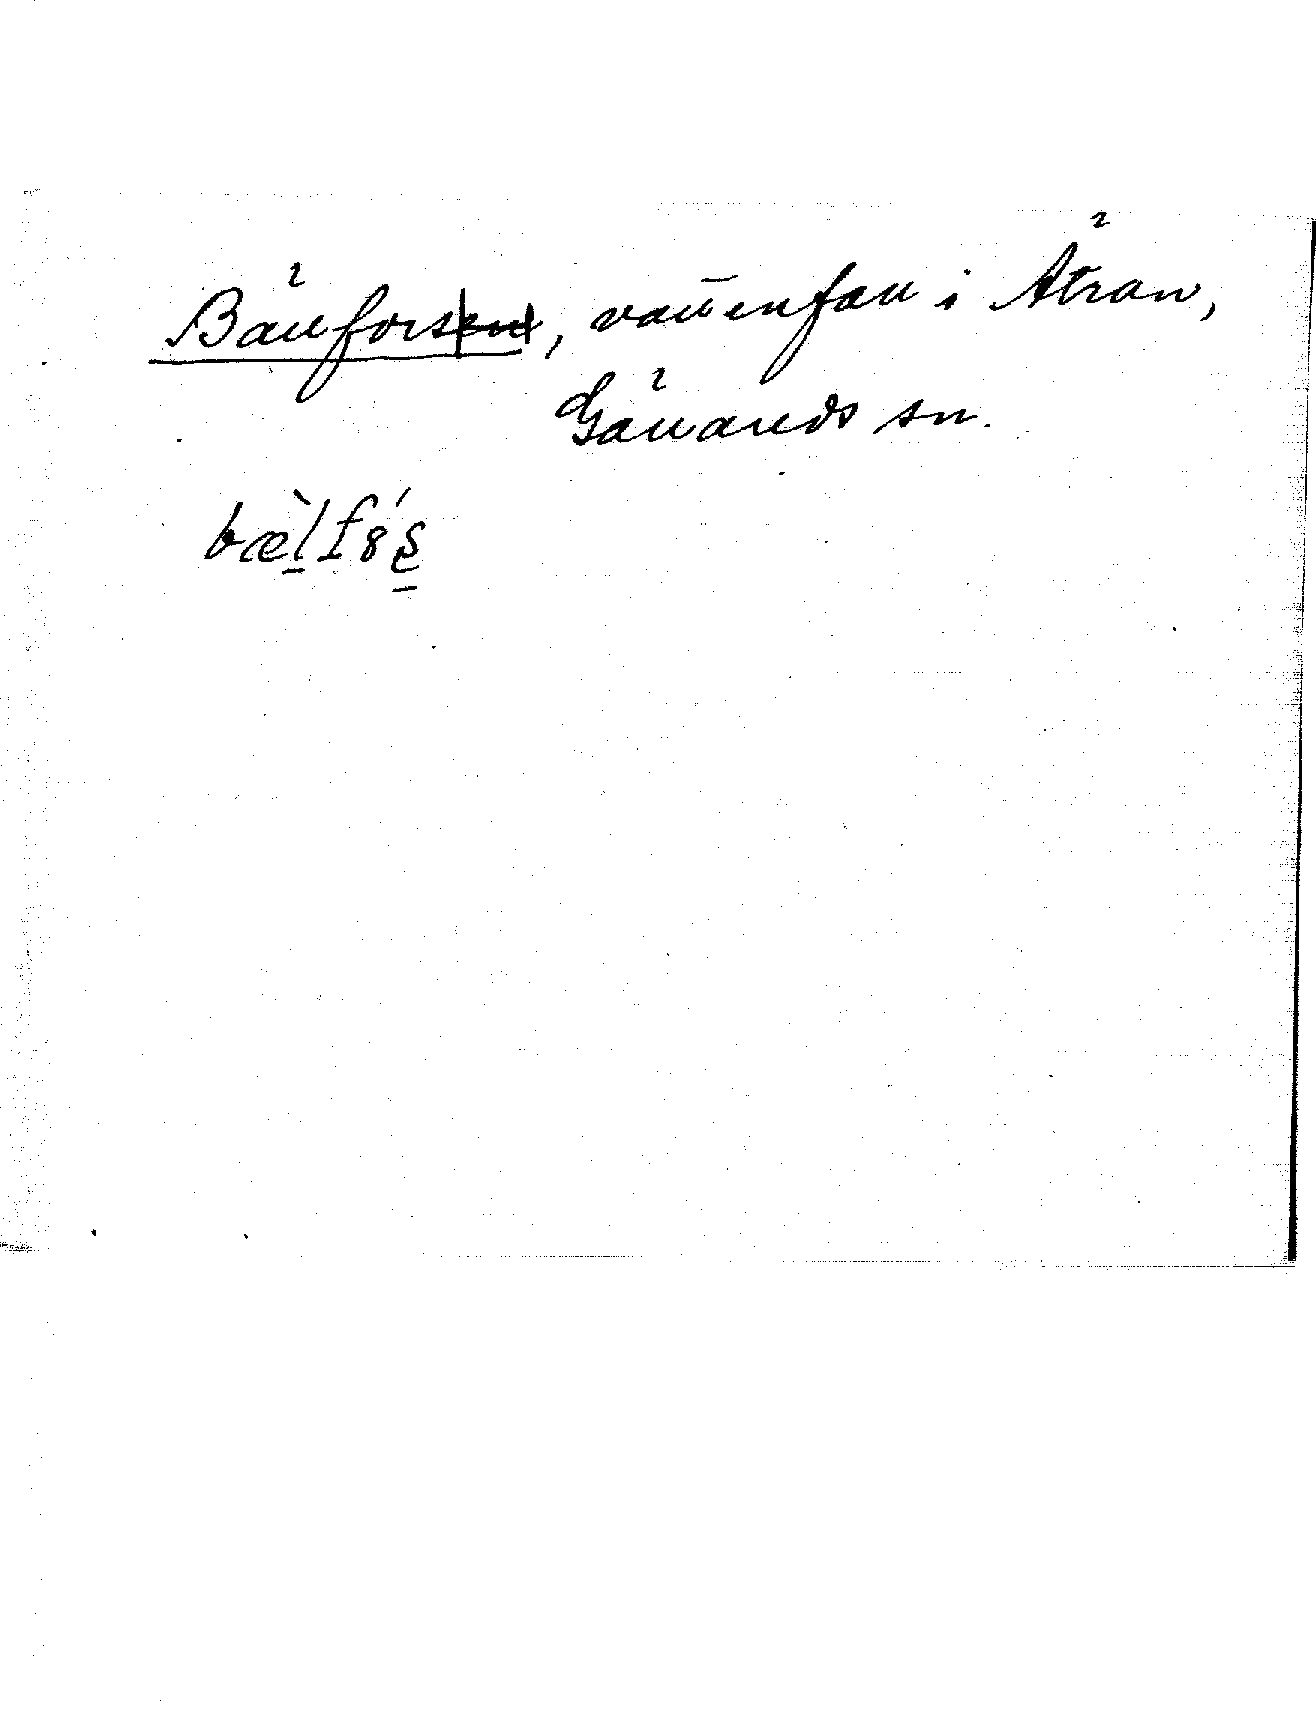 Bällforsen, vattenfall i Ätran,
Gällareds sn.